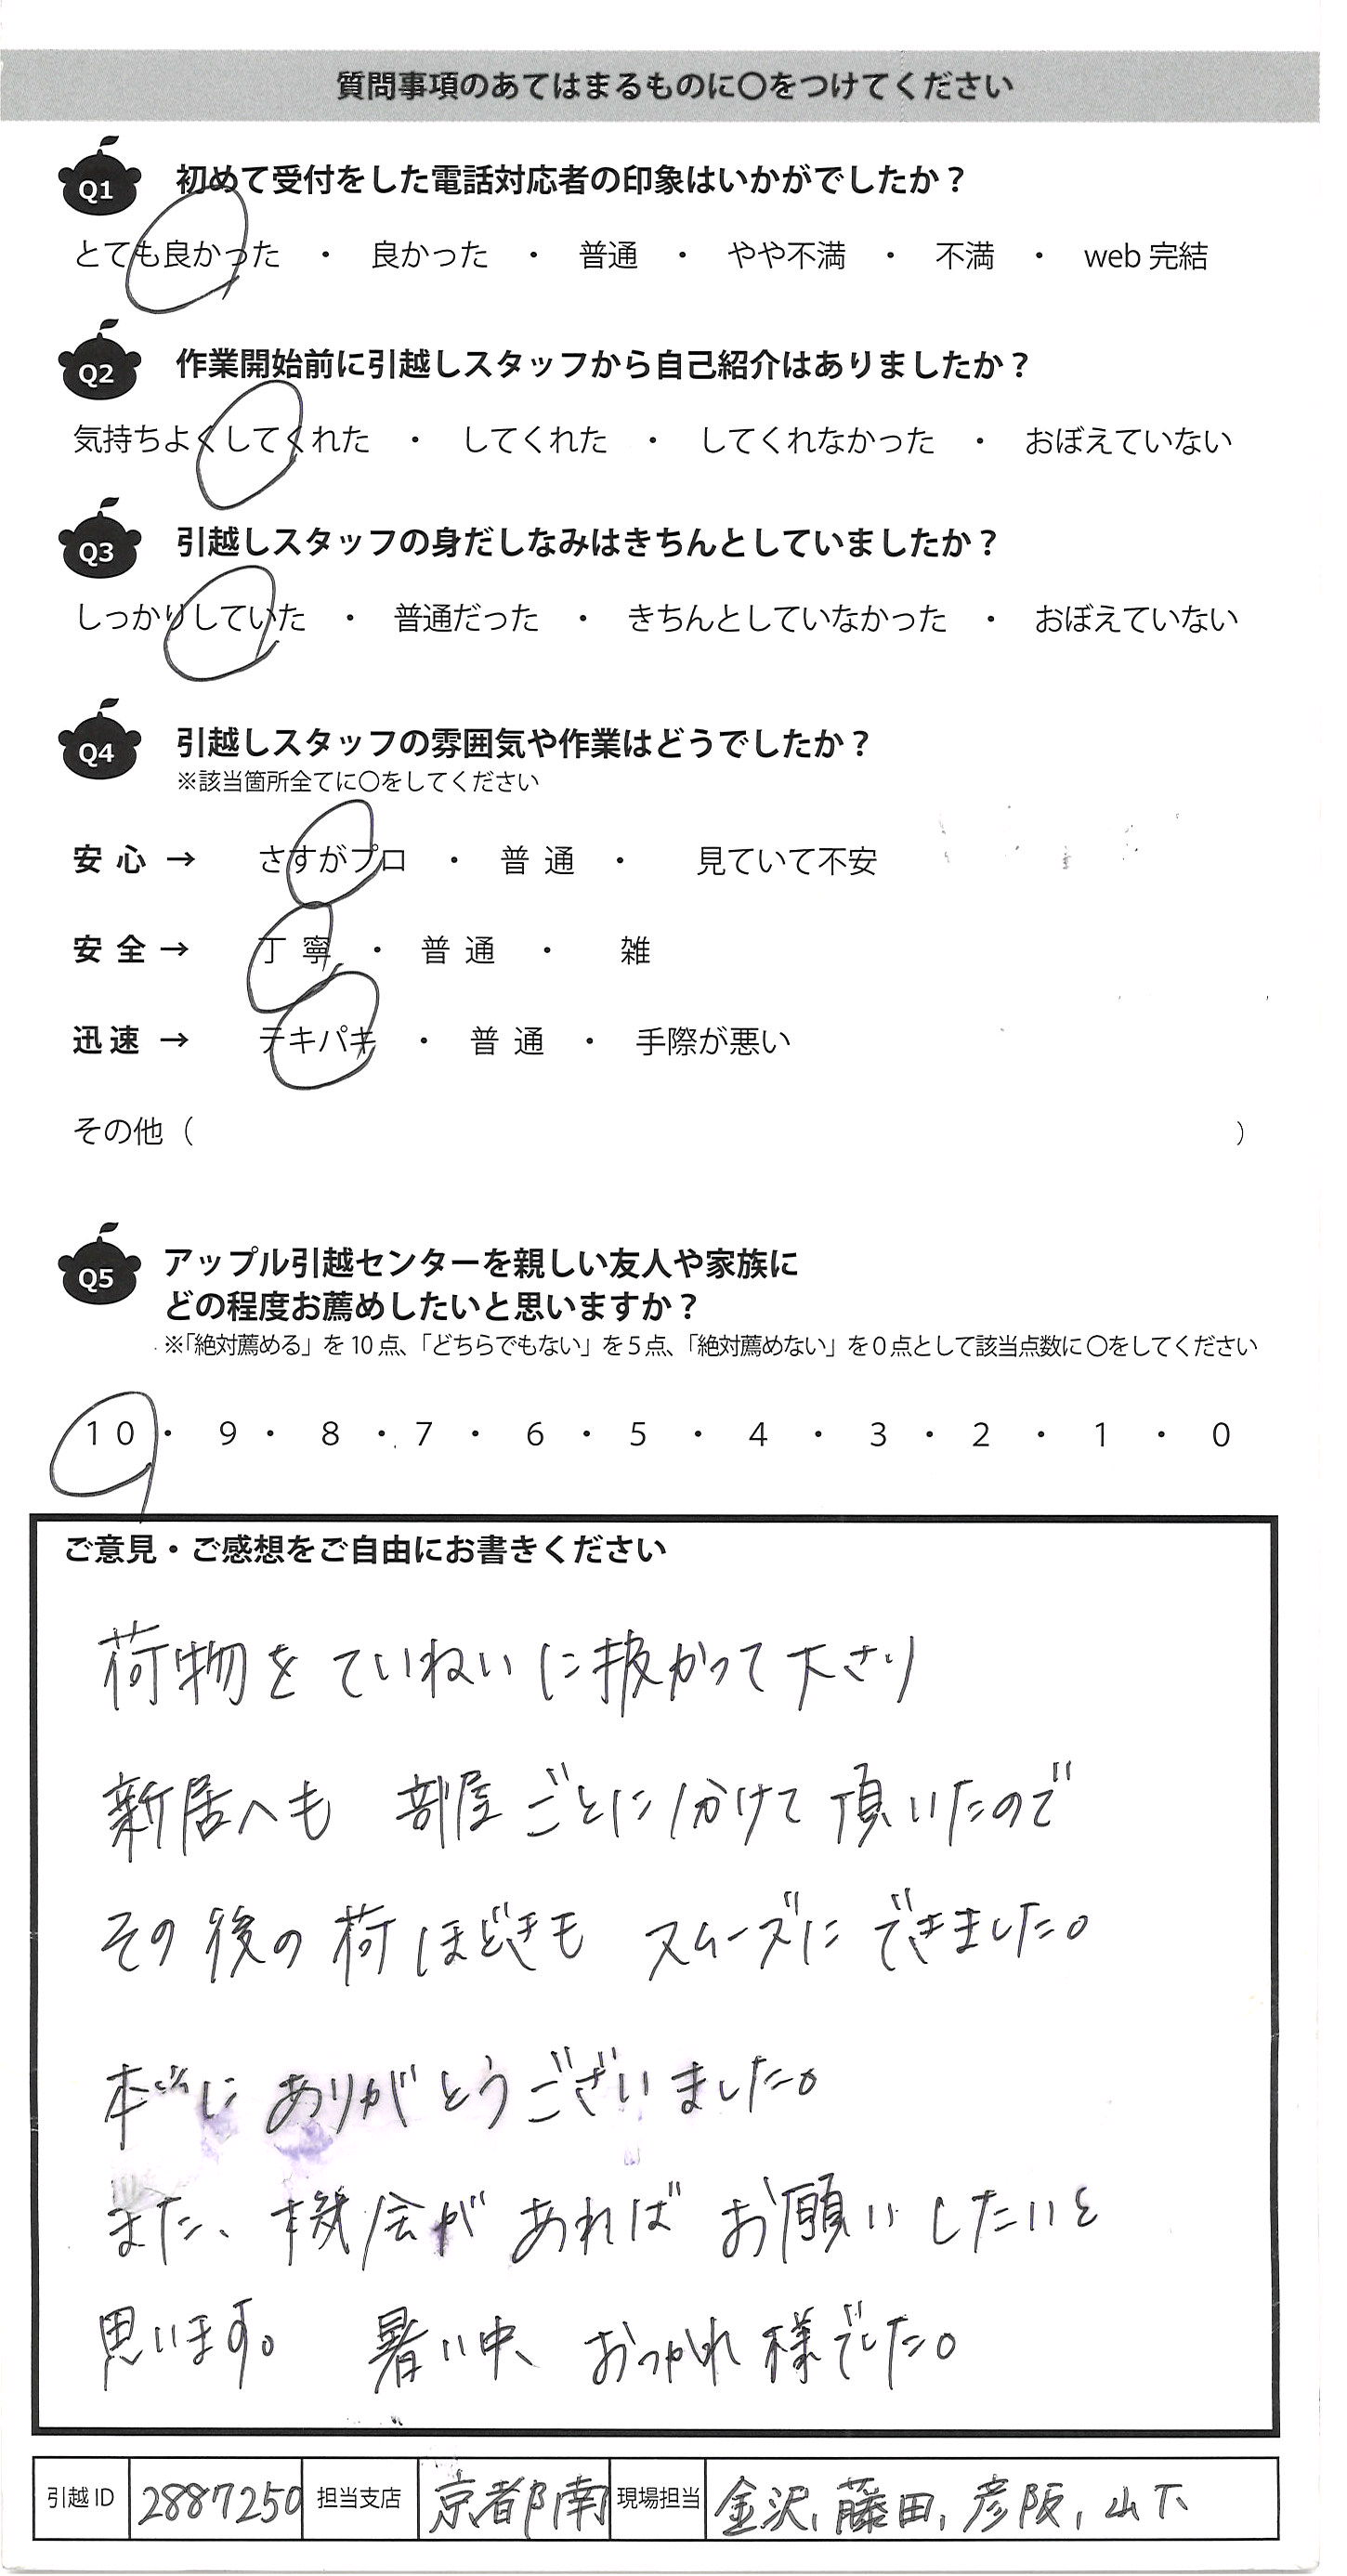 質問事項のあてはまるものに〇をつけてください
Q1 初めて受付をした電話対応者の印象はいかがでしたか？
とても良かった ・ 良かった ・ 普通 ・ やや不満 ・ 不満 ・ web 完結
Q2 作業開始前に引越しスタッフから自己紹介はありましたか？
気持ちよくしてくれた ・ してくれた ・ してくれなかった ・ おぼえていない
Q3 引越しスタッフの身だしなみはきちんとしていましたか？
しっかりしていた ・ 普通だった ・ きちんとしていなかった ・ おぼえていない
Q4 引越しスタッフの雰囲気や作業はどうでしたか？
※該当箇所全てに〇をしてください
安心 → さすがプロ ・ 普通 ・ 見ていて不安
安全 → 丁寧 ・ 普通 ・ 雑
迅速 → テキパキ ・ 普通 ・ 手際が悪い
その他（ ）
Q5 アップル引越センターを親しい友人や家族に
どの程度お薦めしたいと思いますか？
※「絶対薦める」を 10 点、「どちらでもない」を 5 点、「絶対薦めない」を 0 点として該当点数に 〇をしてください
10 ・ 9 ・ 8 ・ 7 ・ 6 ・ 5 ・ 4 ・ 3 ・ 2 ・ 1 ・ 0
ご意見・ご感想をご自由にお書きください
荷物を ていねいに扱かって下さり
新居へも 部屋ごとに分けて頂いたので
その後の荷ほどきも スムーズにできました。
本当に ありがとうございました。
また、機会が あれば お願いしたいと
思います。 暑い中、おつかれ様でした。
引越 ID 2887250 担当支店 京都南 現場担当 金沢、藤田、彦阪、山下